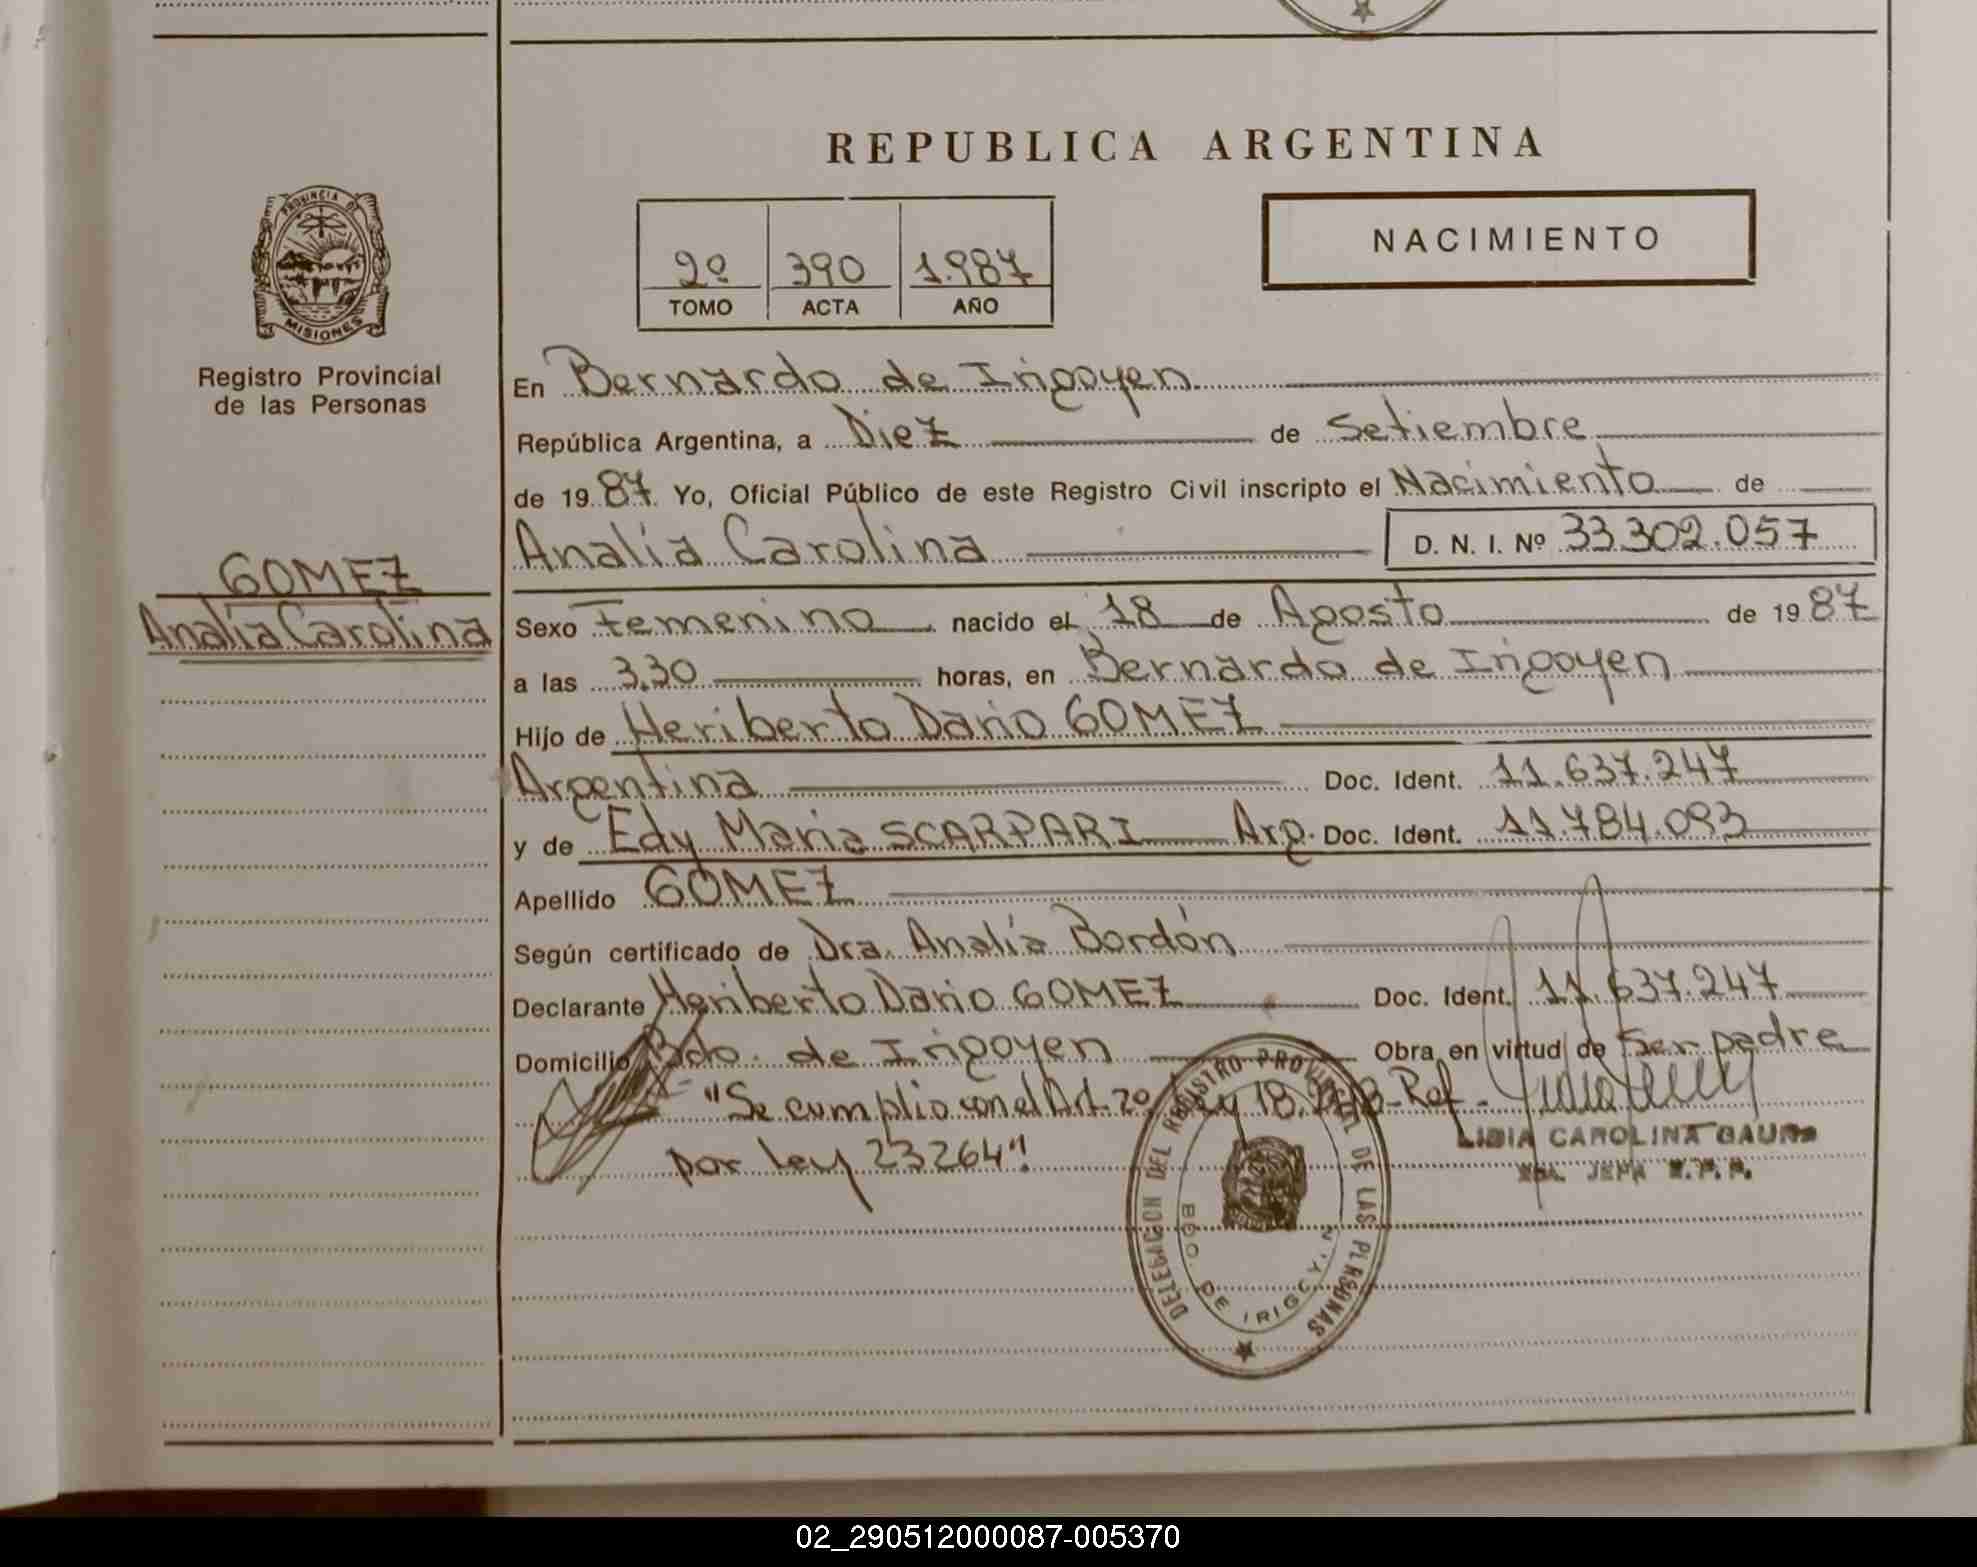 PROVINCIA DE
MISIONES
Registro Provincial
de las Personas
GOMEZ
Analía Carolina
REPUBLICA ARGENTINA
2º 390 1.987
TOMO ACTA AÑO
NACIMIENTO
En Bernardo de Irigoyen
República Argentina, a Diez de Setiembre
de 19 87. Yo, Oficial Público de este Registro Civil inscripto el Nacimiento de
Analía Carolina D. N. I. Nº 33.302.057
Sexo Femenino nacido el 18 de Agosto de 19 87
a las 3,30 horas, en Bernardo de Irigoyen
Hijo de Heriberto Dario GOMEZ
Argentina Doc. Ident. 11.637.247
y de Edy Maria SCARPARI Arg. Doc. Ident. 11.784.093
Apellido GOMEZ
Según certificado de Dra. Analía Bordón
Declarante Heriberto Dario GOMEZ Doc. Ident. 11.637.247
Domicilio Bdo. de Irigoyen Obra en virtud de Ser padre
"Se cumplio con el Art. 2º Ley 18.248-Ref-
por Ley 23264"!
LIDIA CAROLINA
DELEGACION DEL REGISTRO PROVINCIAL DE LAS PERSONAS
BDO. DE IRIGOYEN
02_290512000087-005370